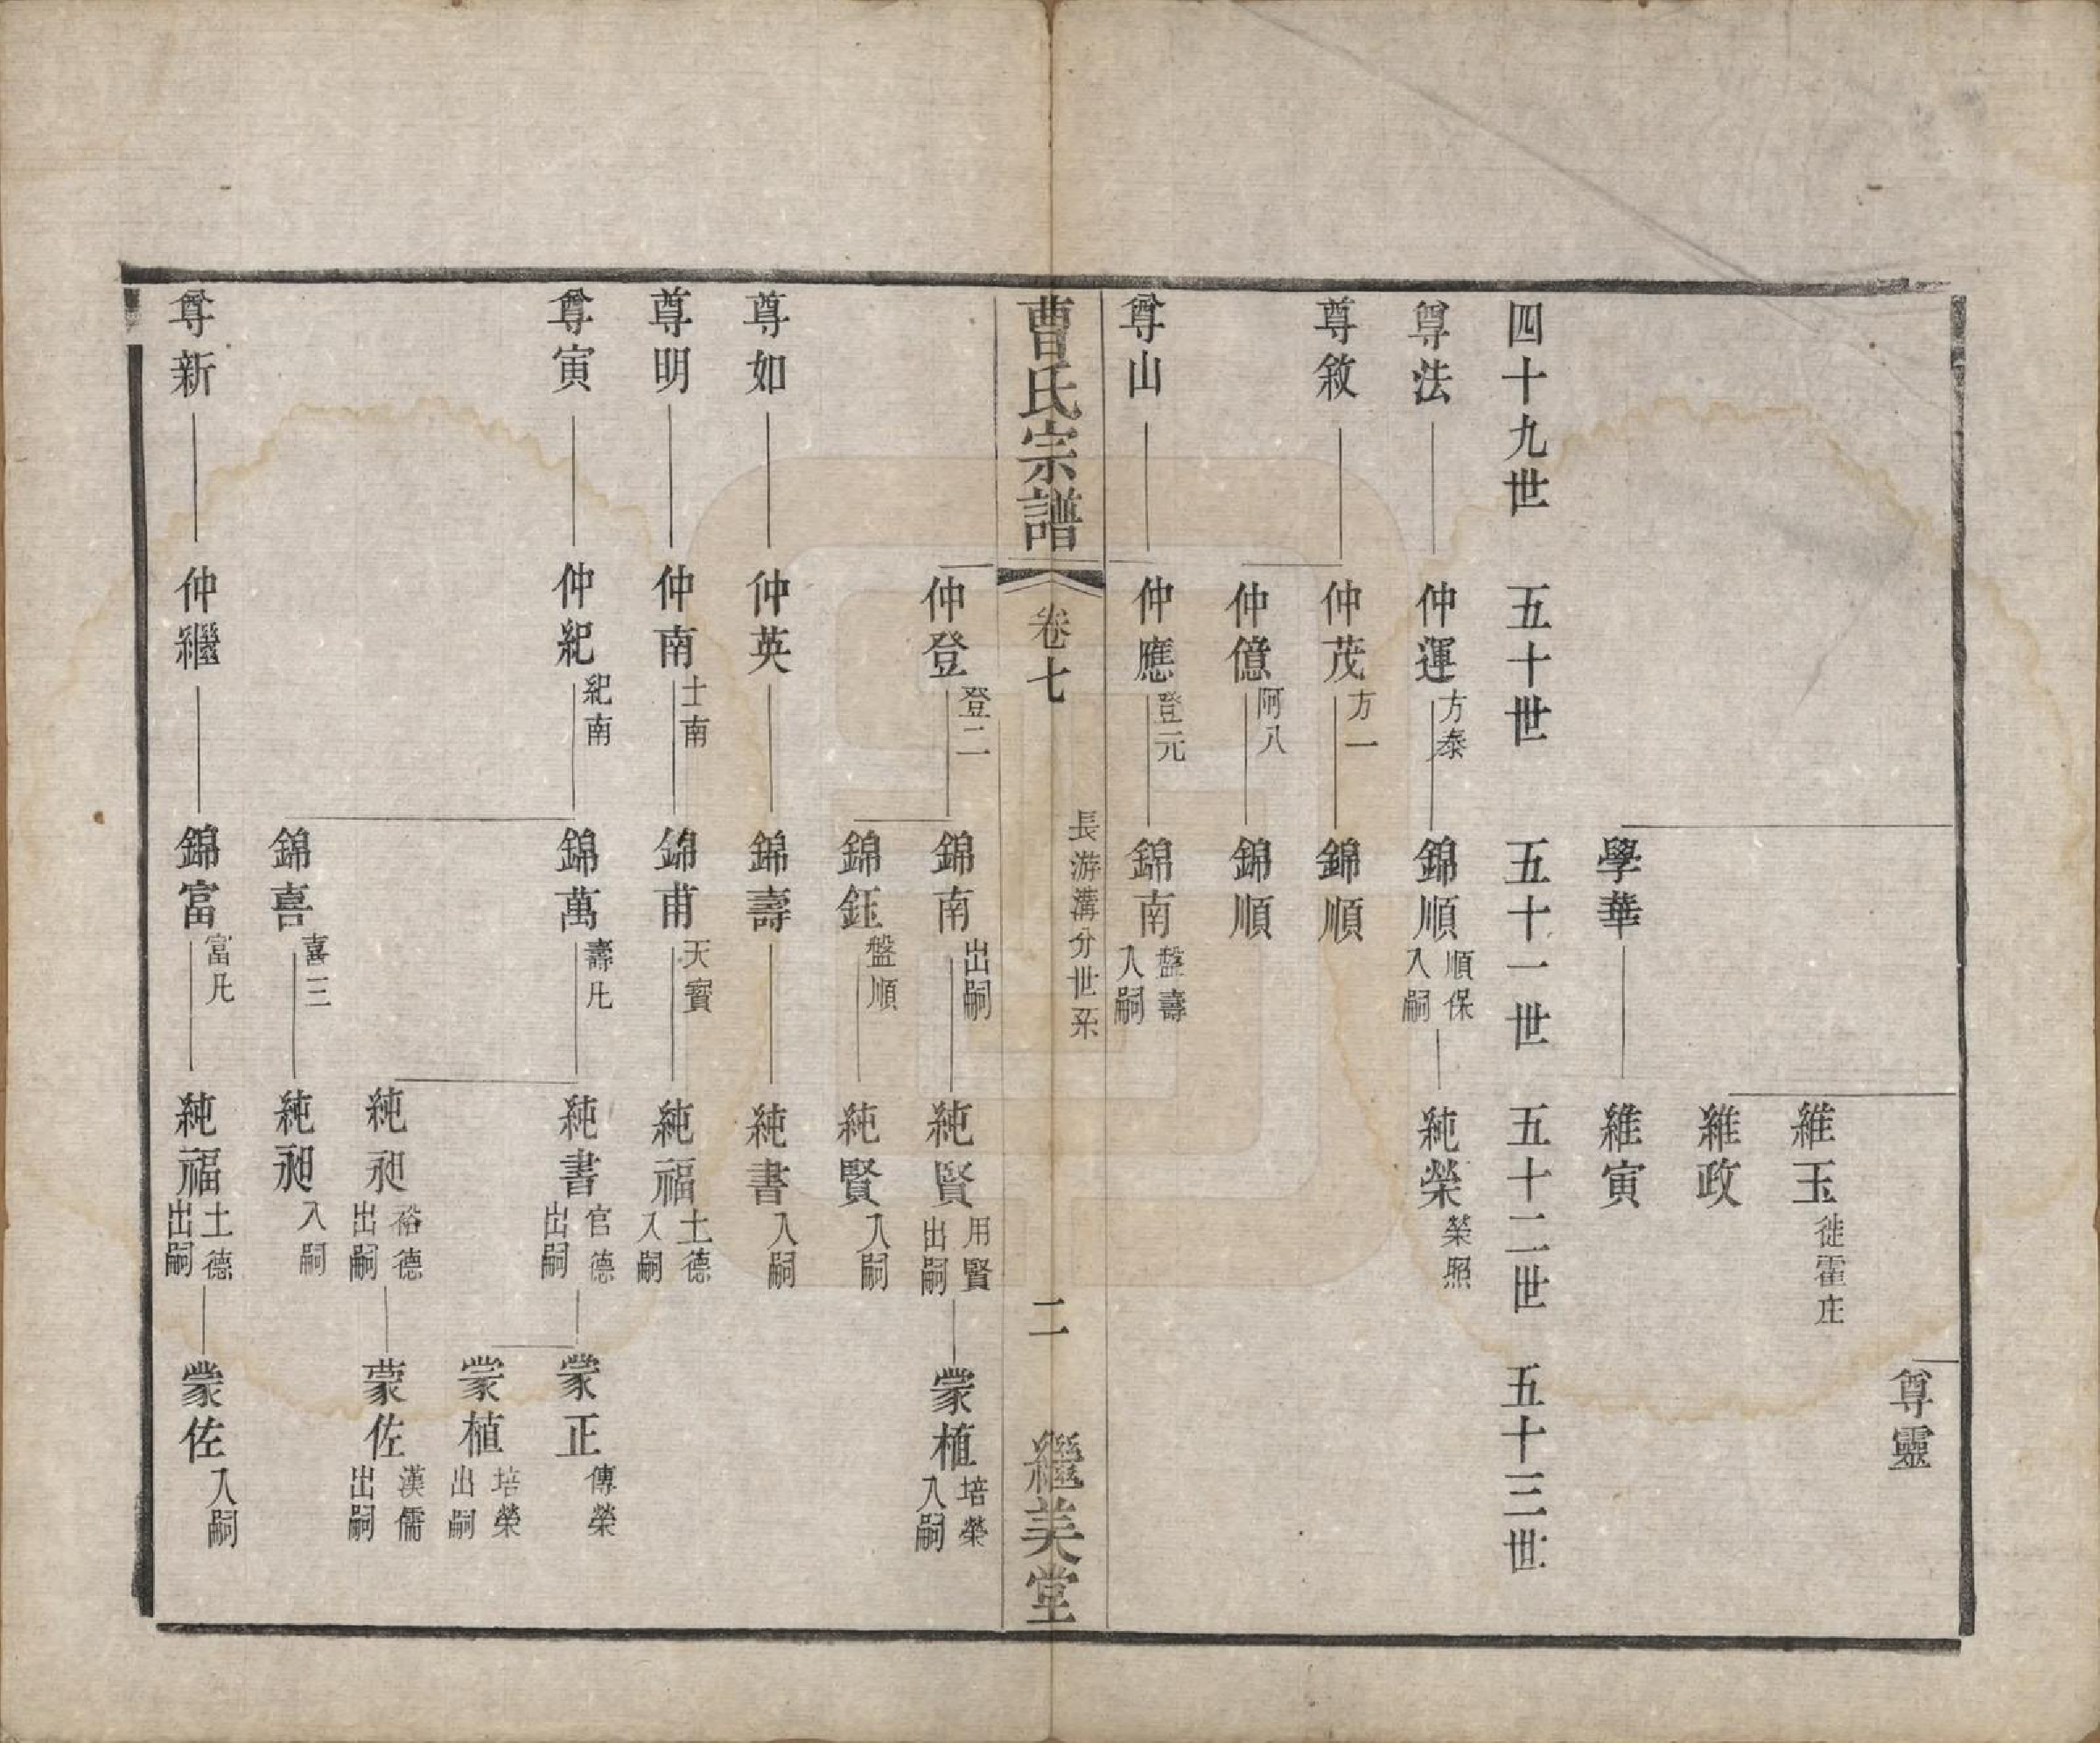 尊靈
維玉 徙霍庄
維政
學華 維寅
四十九世 五十世 五十一世 五十二世 五十三世
尊法 仲運 方泰 錦順 順保 入嗣 純榮 榮照
尊敘 仲茂 方一 錦順
仲億 阿八 錦順
尊山 仲應 登元 錦南 盤壽 入嗣
曹氏宗譜 卷七 長游溝分世系 二 繼美堂
仲登 登二 錦南 出嗣 純賢 用賢 出嗣 蒙植 培榮 入嗣
錦鈺 盤順 純賢 入嗣
尊如 仲英 錦壽 純書 入嗣
尊明 仲南 士南 錦甫 天寳 純福 土德 入嗣
尊寅 仲紀 紀南 錦萬 壽凡 純書 官德 出嗣 蒙正 傳榮
蒙植 培榮 出嗣
純昶 裕德 出嗣 蒙佐 漢儒 出嗣
錦喜 喜三 純昶 入嗣
尊新 仲繼 錦富 富凡 純福 土德 出嗣 蒙佐 入嗣